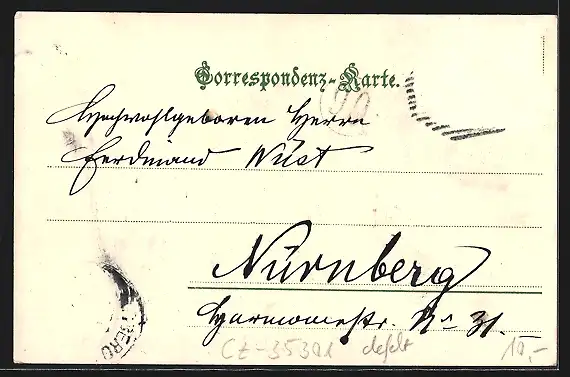 Correspondenz-Karte.
Hochwohlgeboren Herrn
Ferdinand Wüst
Nürnberg
Harmoniestr. No 31.
CZ-35301 defekt 10,-